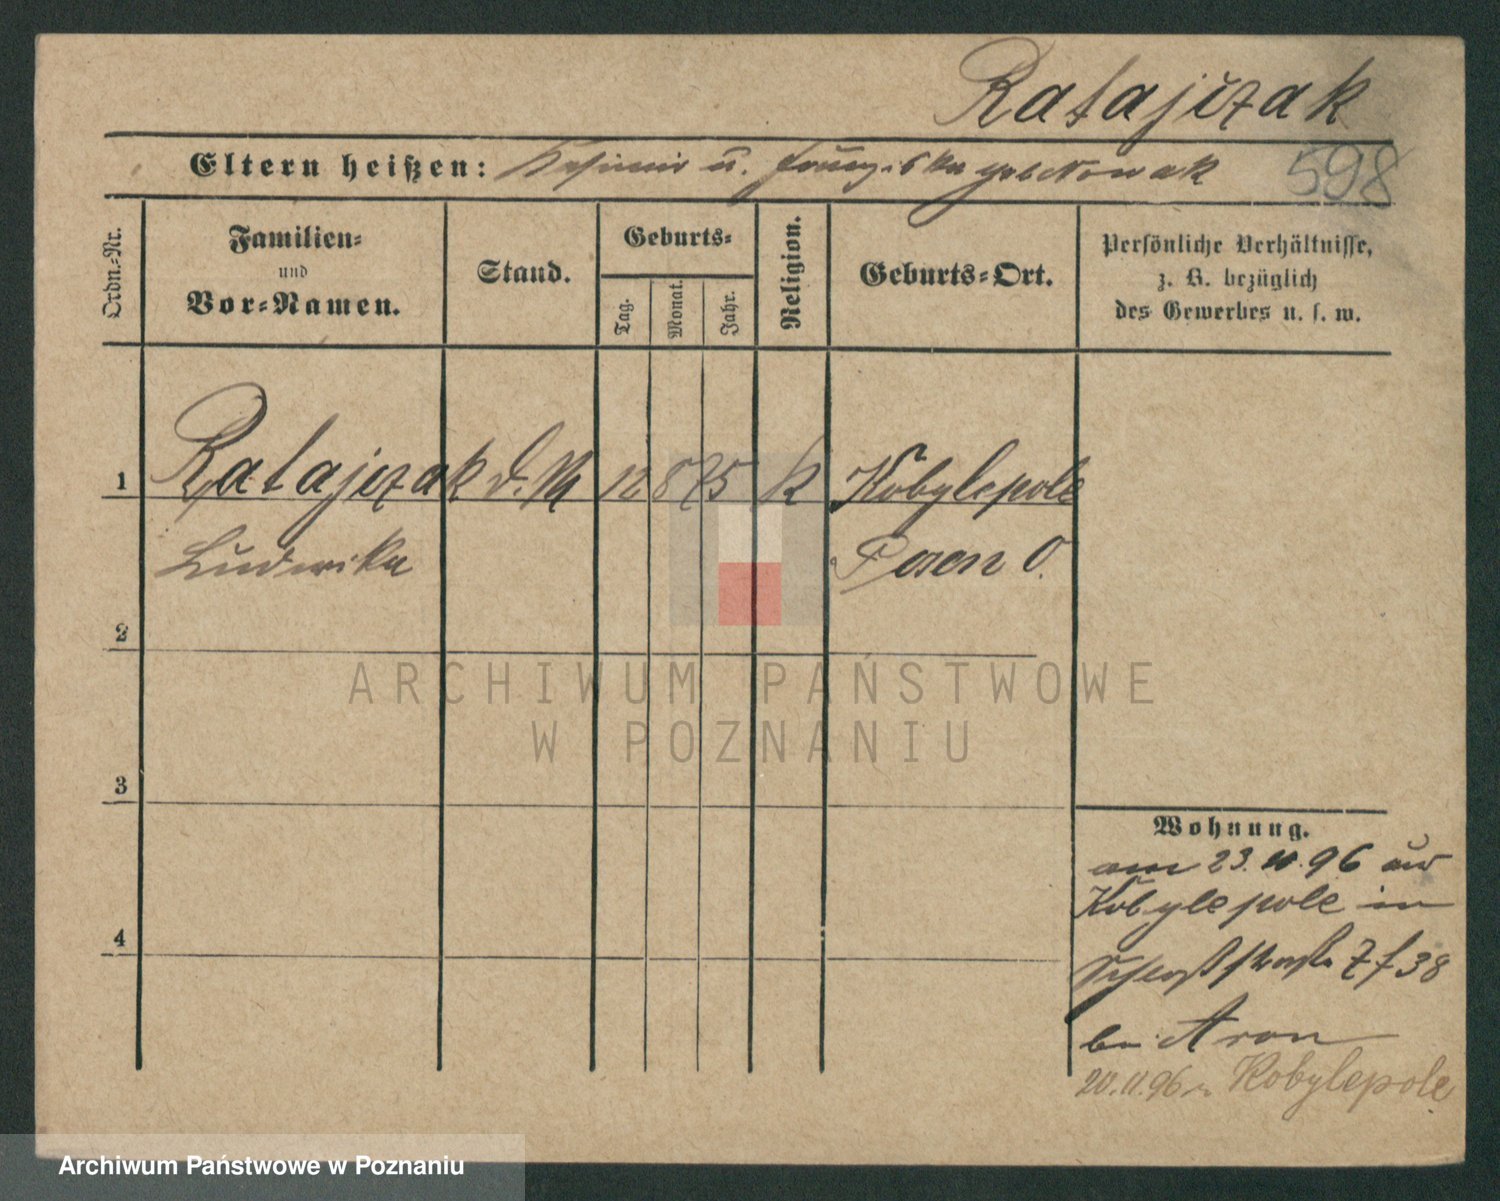 Ratajczak
Eltern heißen: Kasimir u. Franziska geb Nowak
598
Ordn.-Nr.
Familien-
und
Vor-Namen.
Stand.
Geburts-
Tag.
Monat.
Jahr.
Religion.
Geburts-Ort.
Persönliche Verhältnisse,
z. B. bezüglich
des Gewerbes u. s. w.
1 Ratajczak d. M 12 8 75 k Kobylepole
Ludwika Posen O.
2
ARCHIWUM PAŃSTWOWE
W POZNANIU
3
Wohnung.
am 23. 10. 96 aus
Kobylepole in
Schloßstraße 7 f 38
4
bei Aron
20.11.96 n Kobylepole
Archiwum Państwowe w Poznaniu